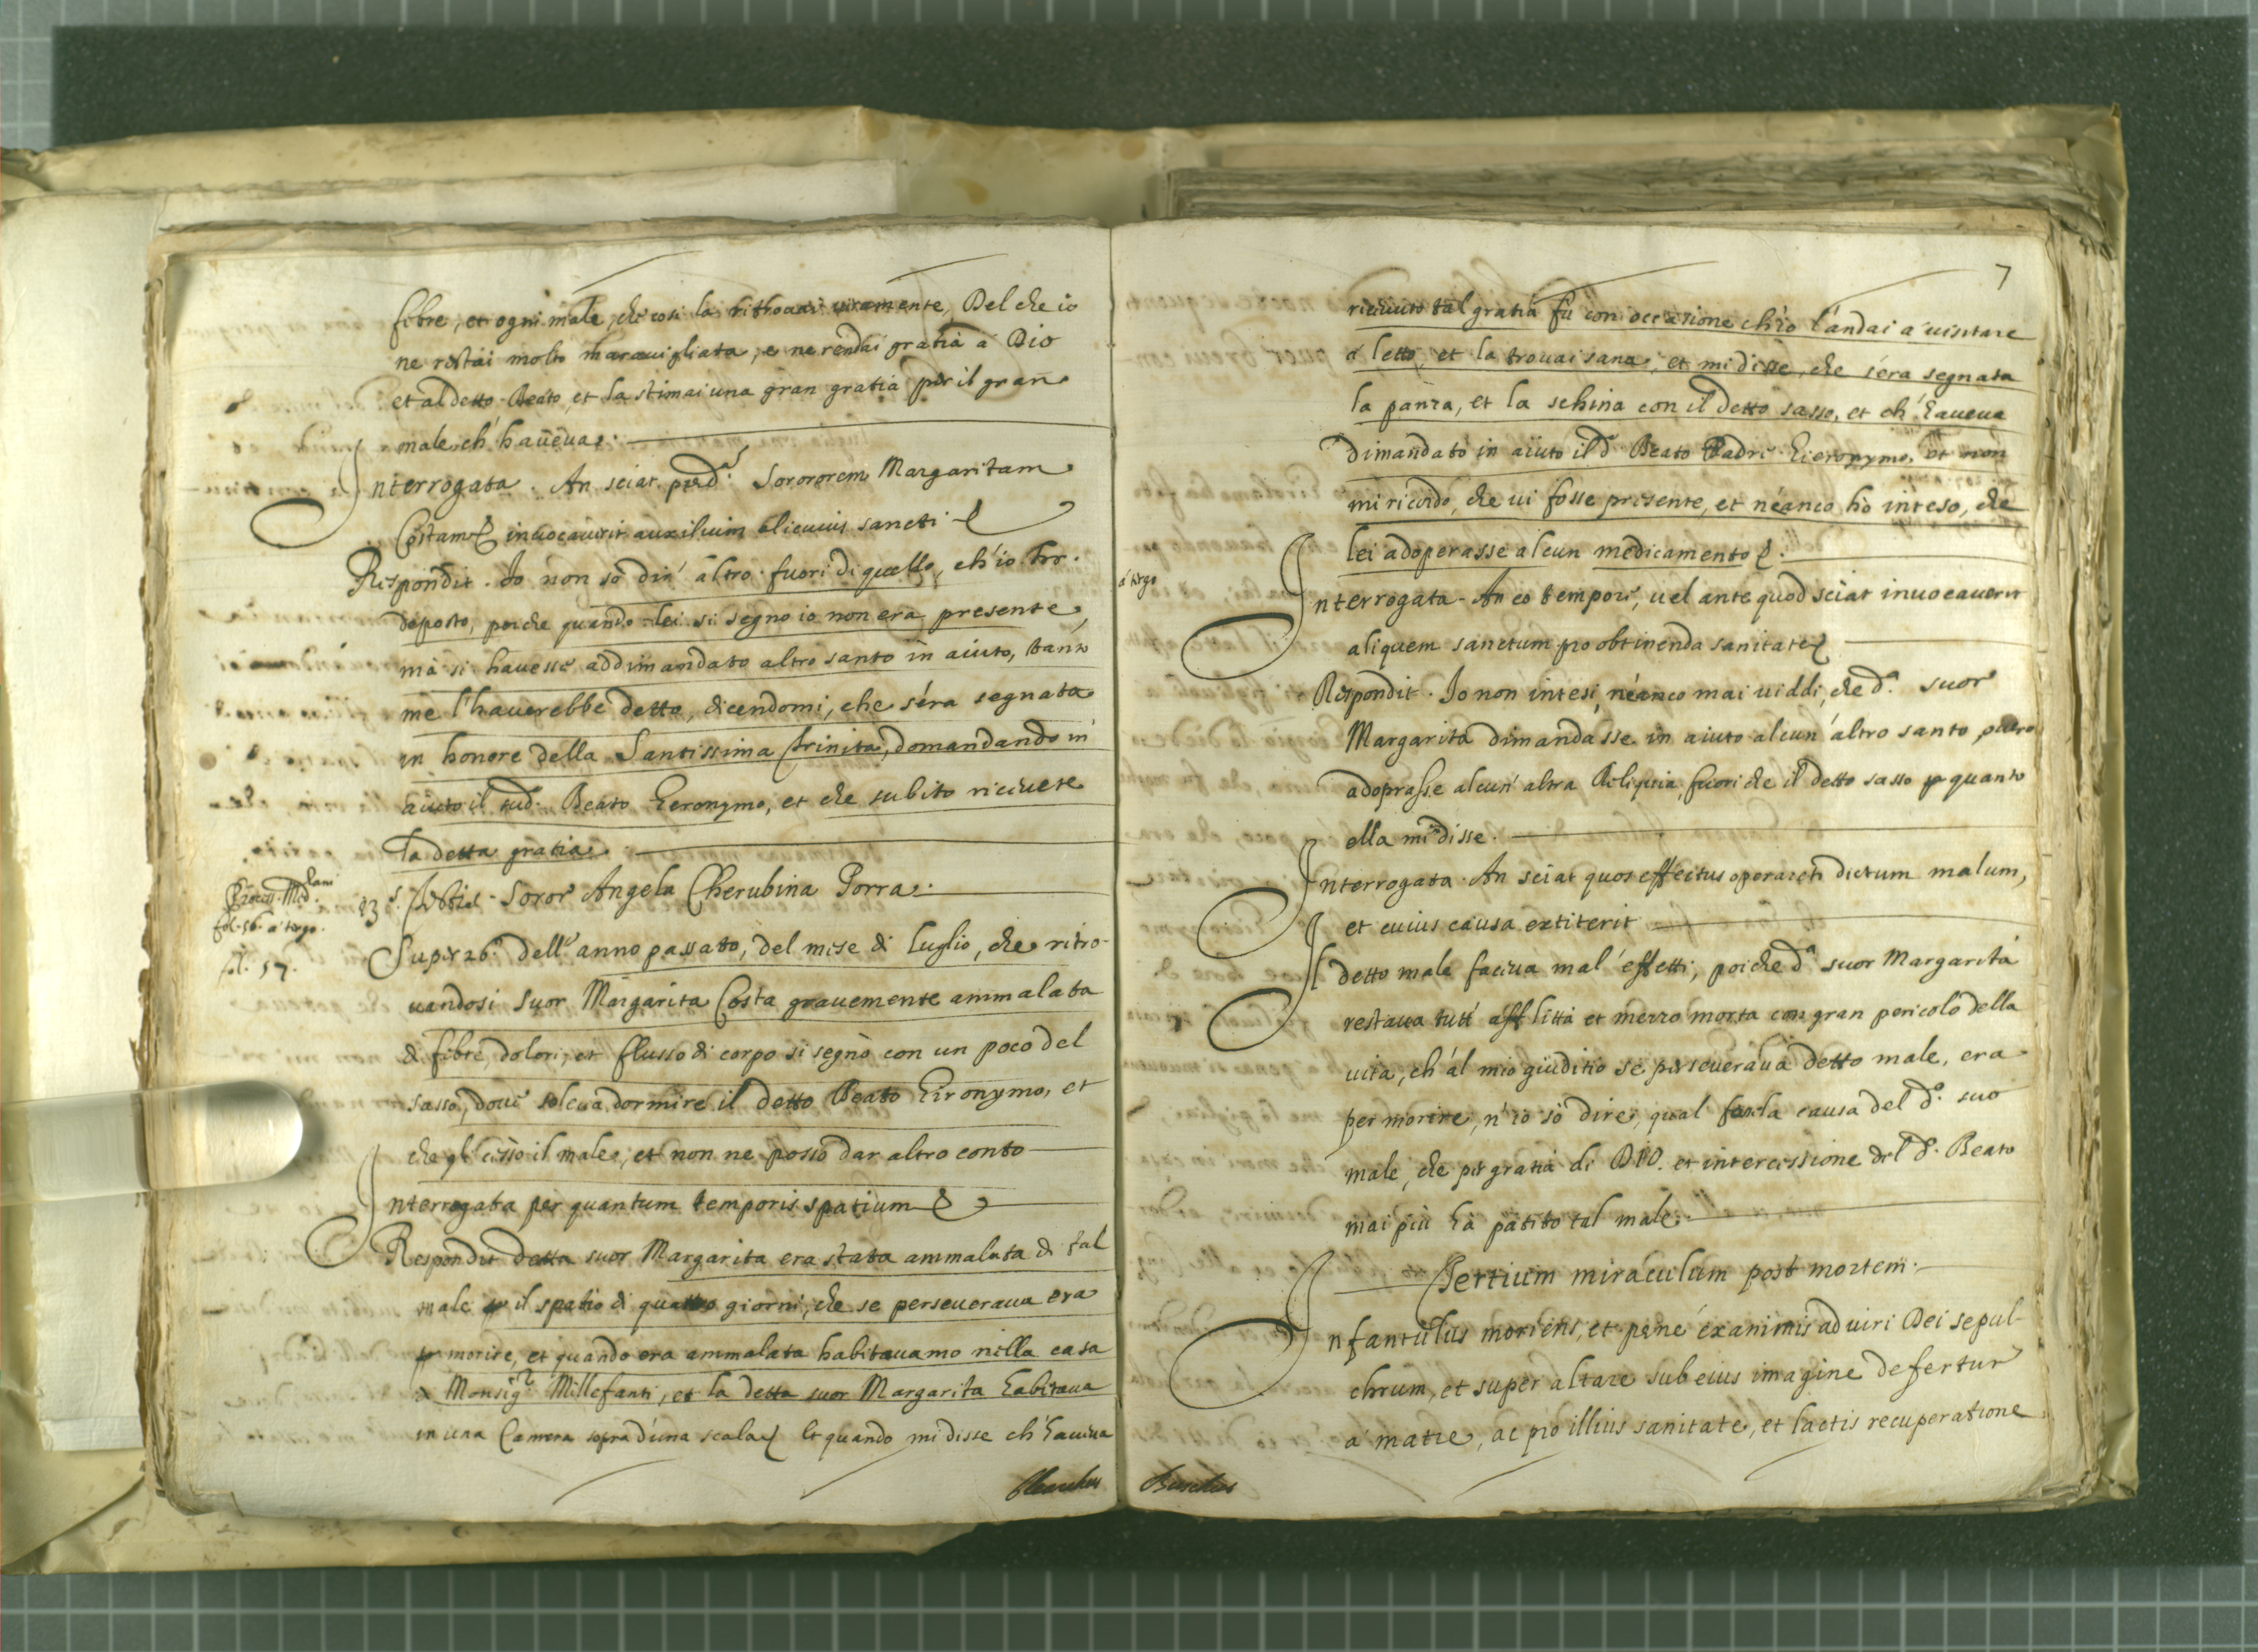 febre, et ogni male, che cosi la ritrouai ueramente, Del che io
ne restai molto marauigliata, e ne rendei gratia à Dio
et al detto Beato, et la stimai una gran gratia per il gran
male ch'haueua.
Interrogata. An sciat pred.ᵃˢ Sorororem Margaritam
Costam inuocauerit auxilium alicuius sancti
Respondit. Io non sò dir' altro fuori di quello, ch'io hò
deposto, perche quando lei si segno io non era presente,
mà si hauesse addimandato altro santo in aiuto, tanto
me l'hauerebbe detto, dicendomi, che s'era segnata
in honore della Santissima Trinita, domandando in
aiuto il sud.º Beato Hieronymo, et che subito riceuete
la detta gratia.
Process. Med.lani
fol. 56. a tergo.
fol. 57.
23 s. Testis. Soror Angela Cherubina Porra.
Super 26.º dell'anno passato, del mese di luglio, che ritro-
uandosi suor Margarita Costa grauemente ammalata
di febre, dolori, et flusso di corpo si segnò con un poco del
sasso, doue soleua dormire il detto Beato Hieronymo, et
che gli cessò il male, et non ne posso dar altro conto
Interrogata per quantum temporis spatium &
Respondit detta suor Margarita era stata ammalata di tal
male p il spatio di quattro giorni, che se perseueraua era
p morire, et quando era ammalata habitauamo nella casa
di Monsig.r Millefanti, et la detta suor Margarita habitaua
in una Camera sopra d'una scala, Et quando mi disse ch'haueua
7
riceuuto tal gratia fù con occasione ch'io l'andai a uisitare
à letto, et la trouai sana, et mi disse, che s'era segnata
la panza, et la schina con il detto sasso, et ch'haueua
dimandato in aiuto il d.º Beato Padre Hieronymo, et non
mi ricordo, che ui fosse presente, et néanco hò inteso, che
lei adoperasse alcun medicamento &.
à tergo
Interrogata. An eo tempore, uel ante quod sciat inuocauerit
aliquem sanctum pro obtinenda sanitate
Respondit. Io non intesi, néanco mai uiddi, che d.ª suor
Margarita dimandasse in aiuto alcun'altro santo, ouero
adoprasse alcun'altra Reliquia, fuori che il detto sasso p quanto
ella mi disse.
Interrogata. An sciat quos effectus operaret dictum malum,
et cuius causa extiterit
Il detto male faceua mal'effetti, poiche d.ª suor Margarita
restaua tutt'afflitta et mezzo morta con gran pericolo della
uita, ch'al mio giuditio se perseueraua detto male, era
per morire, n'io sò dire, qual fosse la causa del d.º suo
male, che per gratia di DIO. et intercessione del d.º Beato
mai più hà patito tal male.
Tertium miraculum post mortem.
Infantulus moriens, et pené exanimis ad uiri Dei sepul-
chrum, et super altare sub eius imagine defertur
a matre, ac pro illius sanitate, et lactis recuperatione